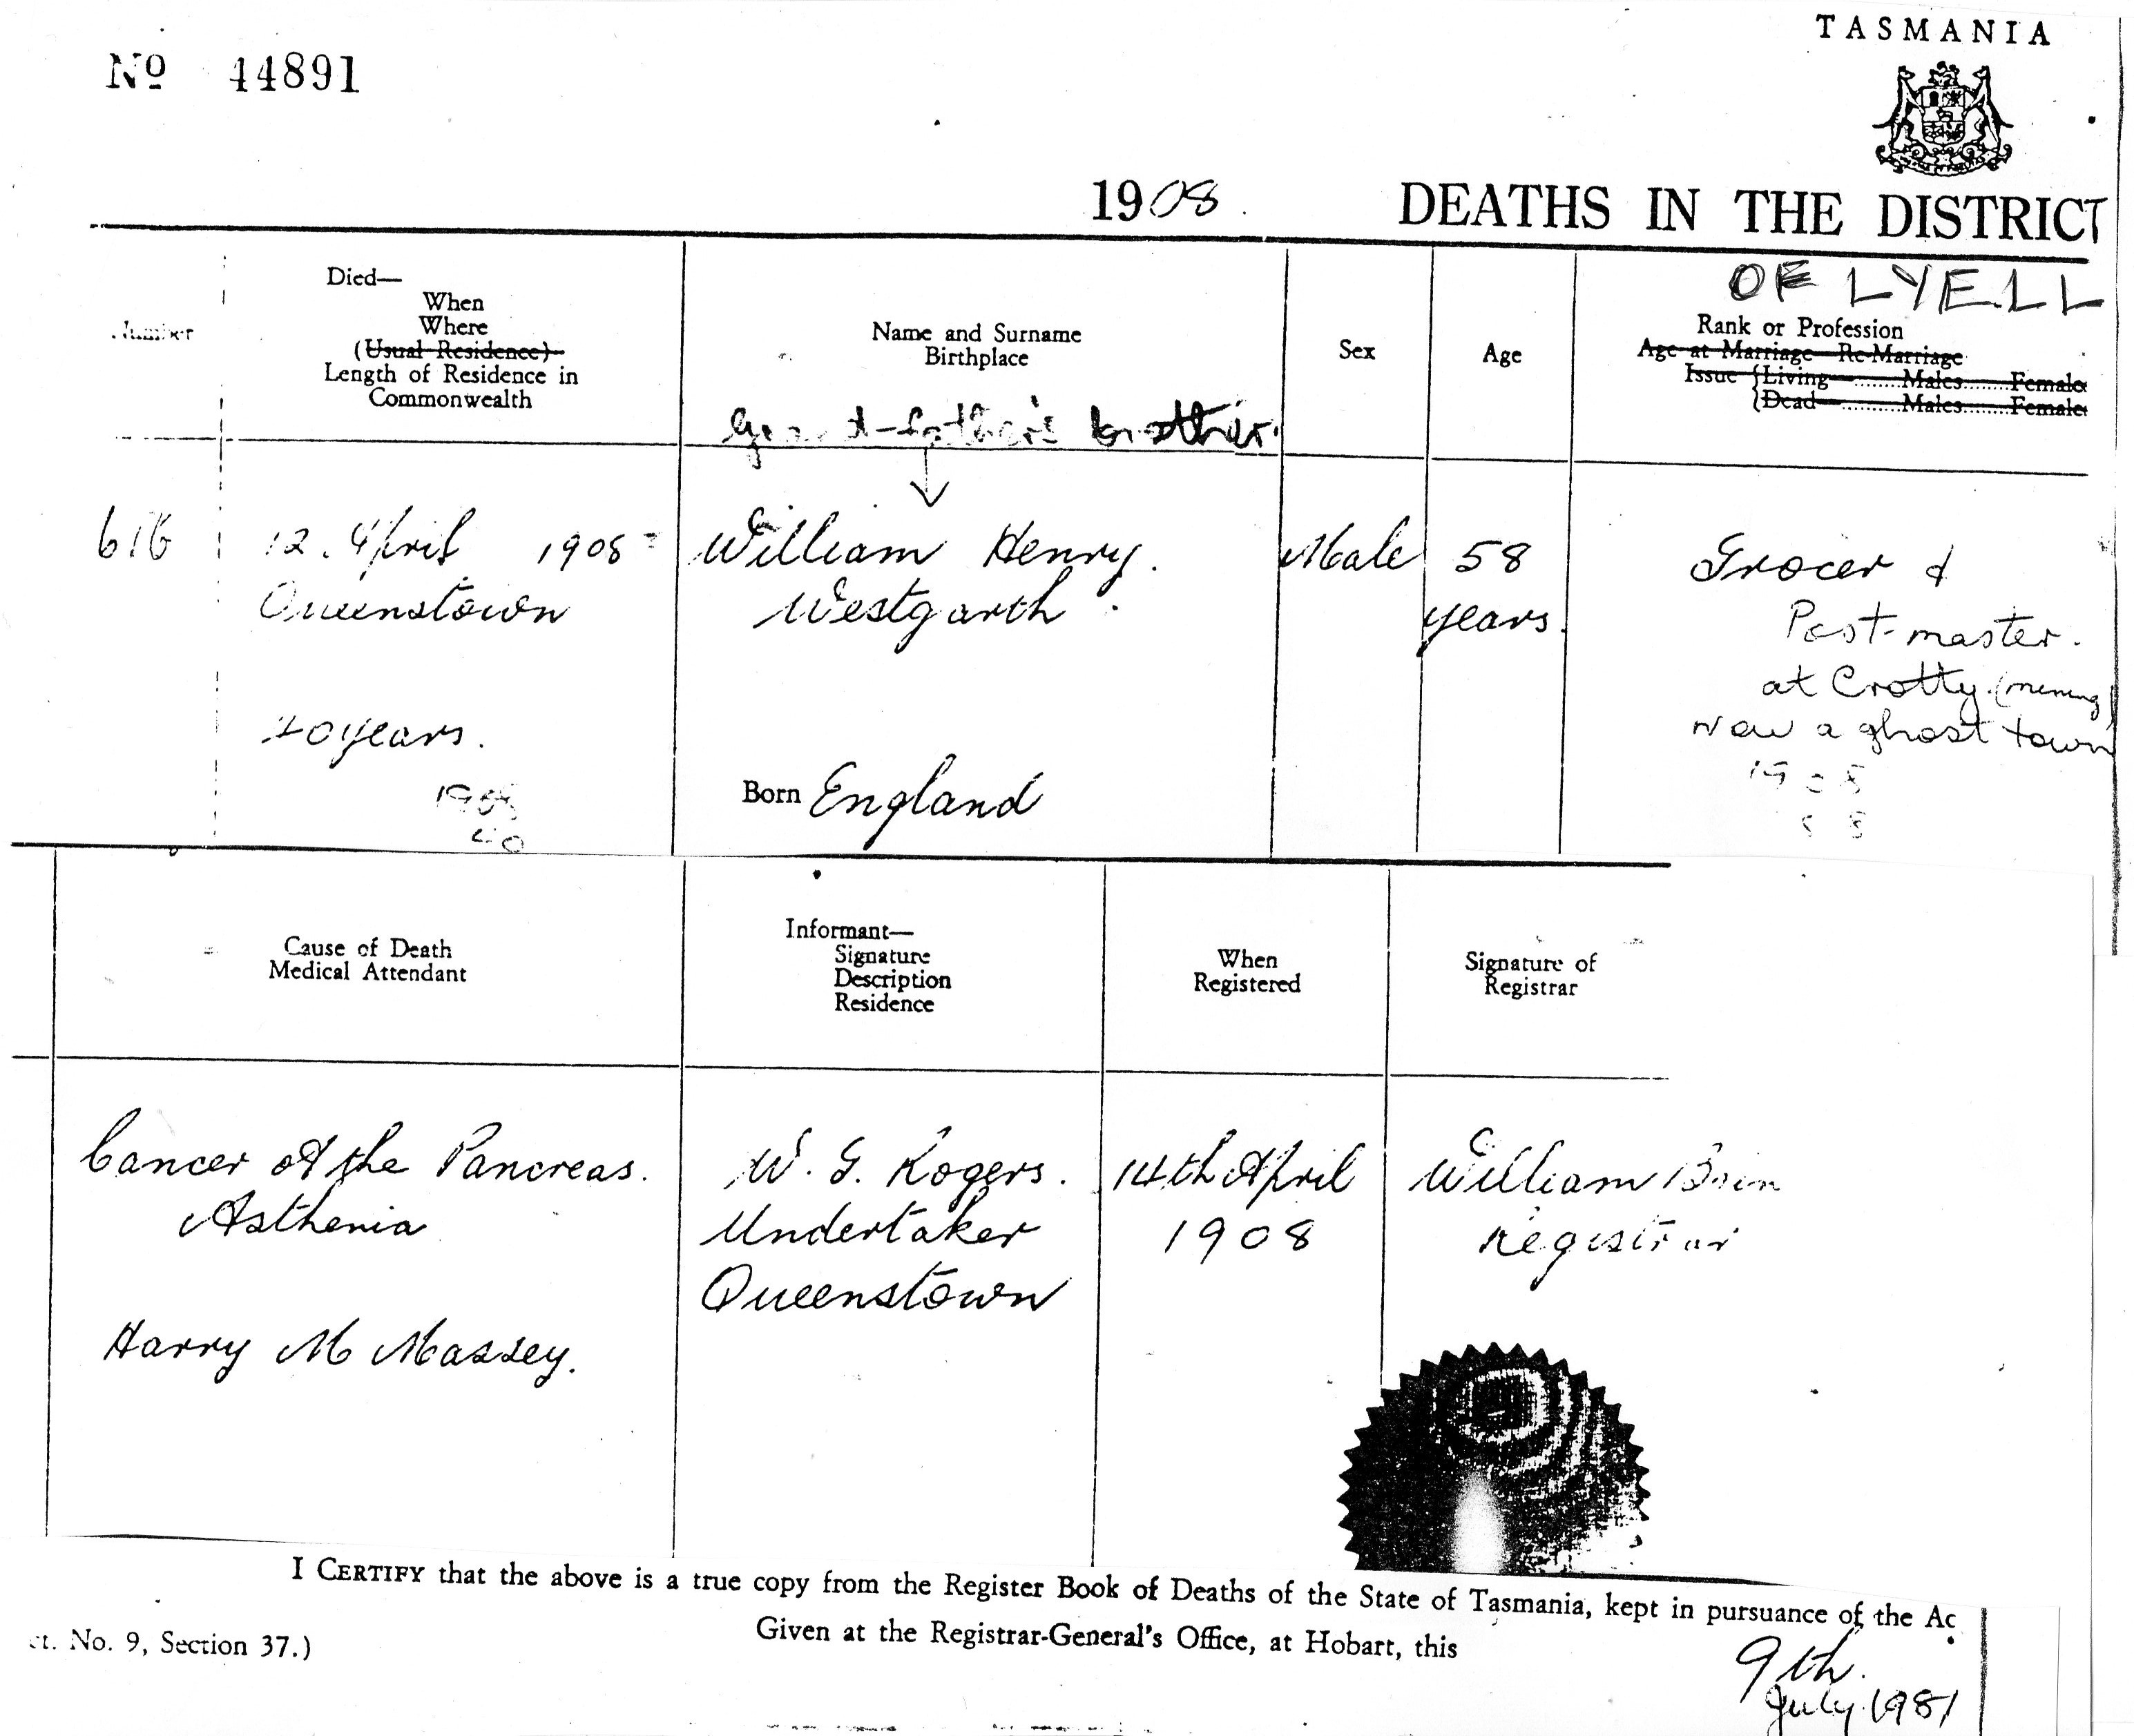 TASMANIA
No 44891
1908
DEATHS IN THE DISTRICT
OF LYELL
Number
Died—
When
Where
(Usual Residence)
Length of Residence in
Commonwealth
Name and Surname
Birthplace
grand-father's brother.
Sex
Age
Rank or Profession
Age at Marriage Re-Marriage
Issue {Living ......... Males ......... Females
{Dead ......... Males ......... Females
616
12. April 1908
Queenstown
20 years.
1908
William Henry.
Westgarth
Born England
Male
58
years.
Grocer &
Post-master.
at Crotty (mining)
Now a ghost town
1908
Cause of Death
Medical Attendant
Informant—
Signature
Description
Residence
When
Registered
Signature of
Registrar
Cancer of the Pancreas.
Asthenia
Harry M Massey.
W. G. Rogers.
Undertaker
Queenstown
14th April
1908
William
Registrar
I CERTIFY that the above is a true copy from the Register Book of Deaths of the State of Tasmania, kept in pursuance of the Ac
ct. No. 9, Section 37.)
Given at the Registrar-General's Office, at Hobart, this
9th.
July 1981